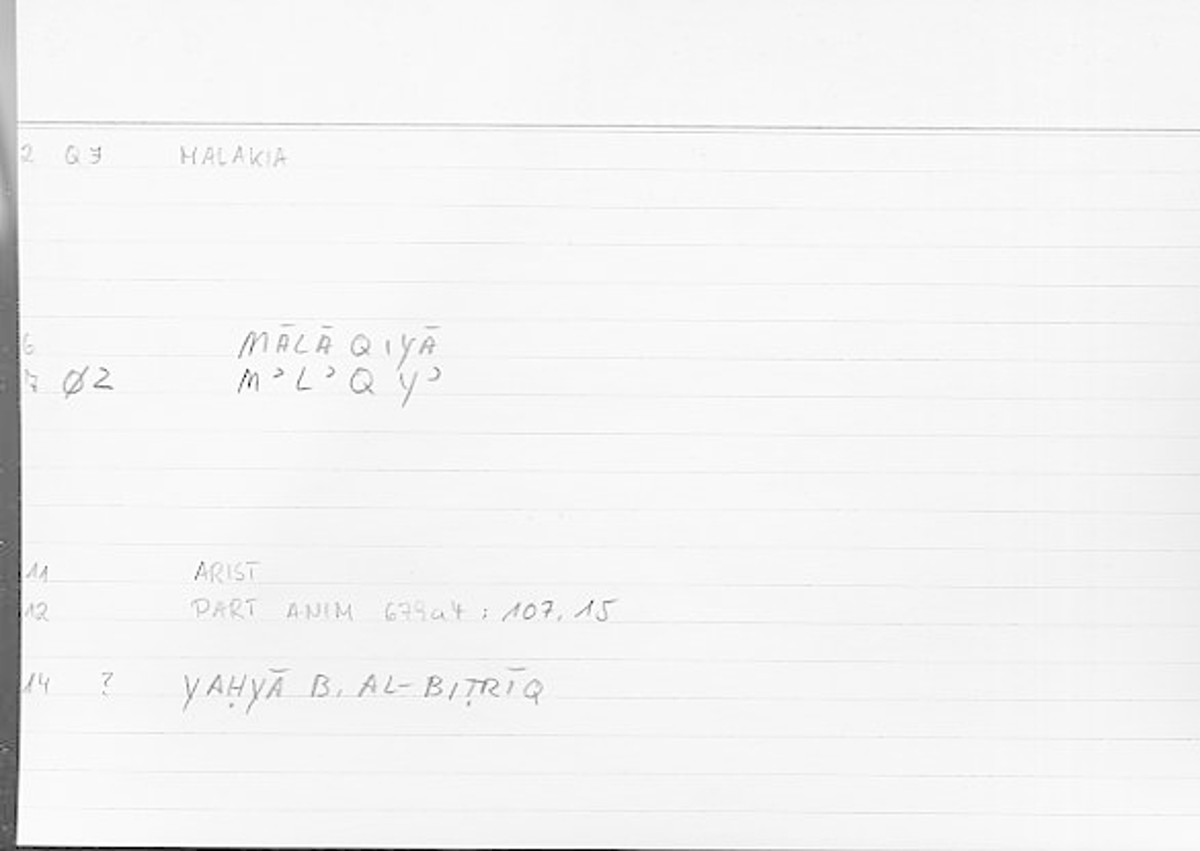 2 Q7 MALAKIA
6 MĀLĀ QIYĀ
7 Ø2 MʾLʾQ Yʾ
11 ARIST
12 PART ANIM 679a4 : 107.15
14 ? YAḤYĀ B. AL-BIṬRĪQ